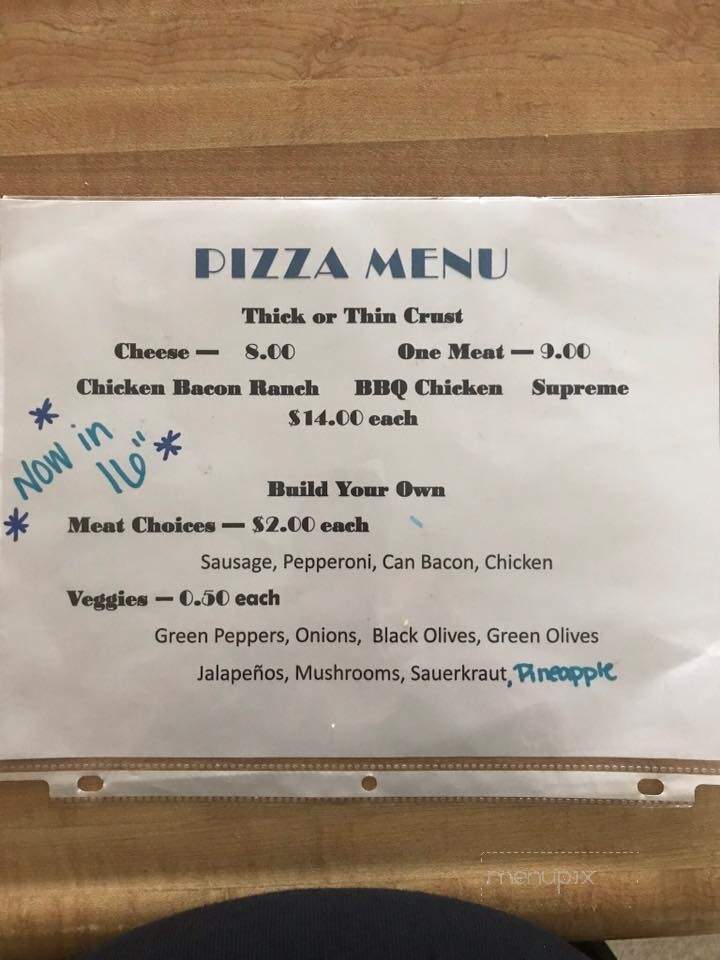 PIZZA MENU
Thick or Thin Crust
Cheese — 8.00 One Meat — 9.00
Chicken Bacon Ranch BBQ Chicken Supreme
$14.00 each
* Now in 16" *
Build Your Own
* Meat Choices — $2.00 each
Sausage, Pepperoni, Can Bacon, Chicken
Veggies — 0.50 each
Green Peppers, Onions, Black Olives, Green Olives
Jalapeños, Mushrooms, Sauerkraut, Pineapple
menupix